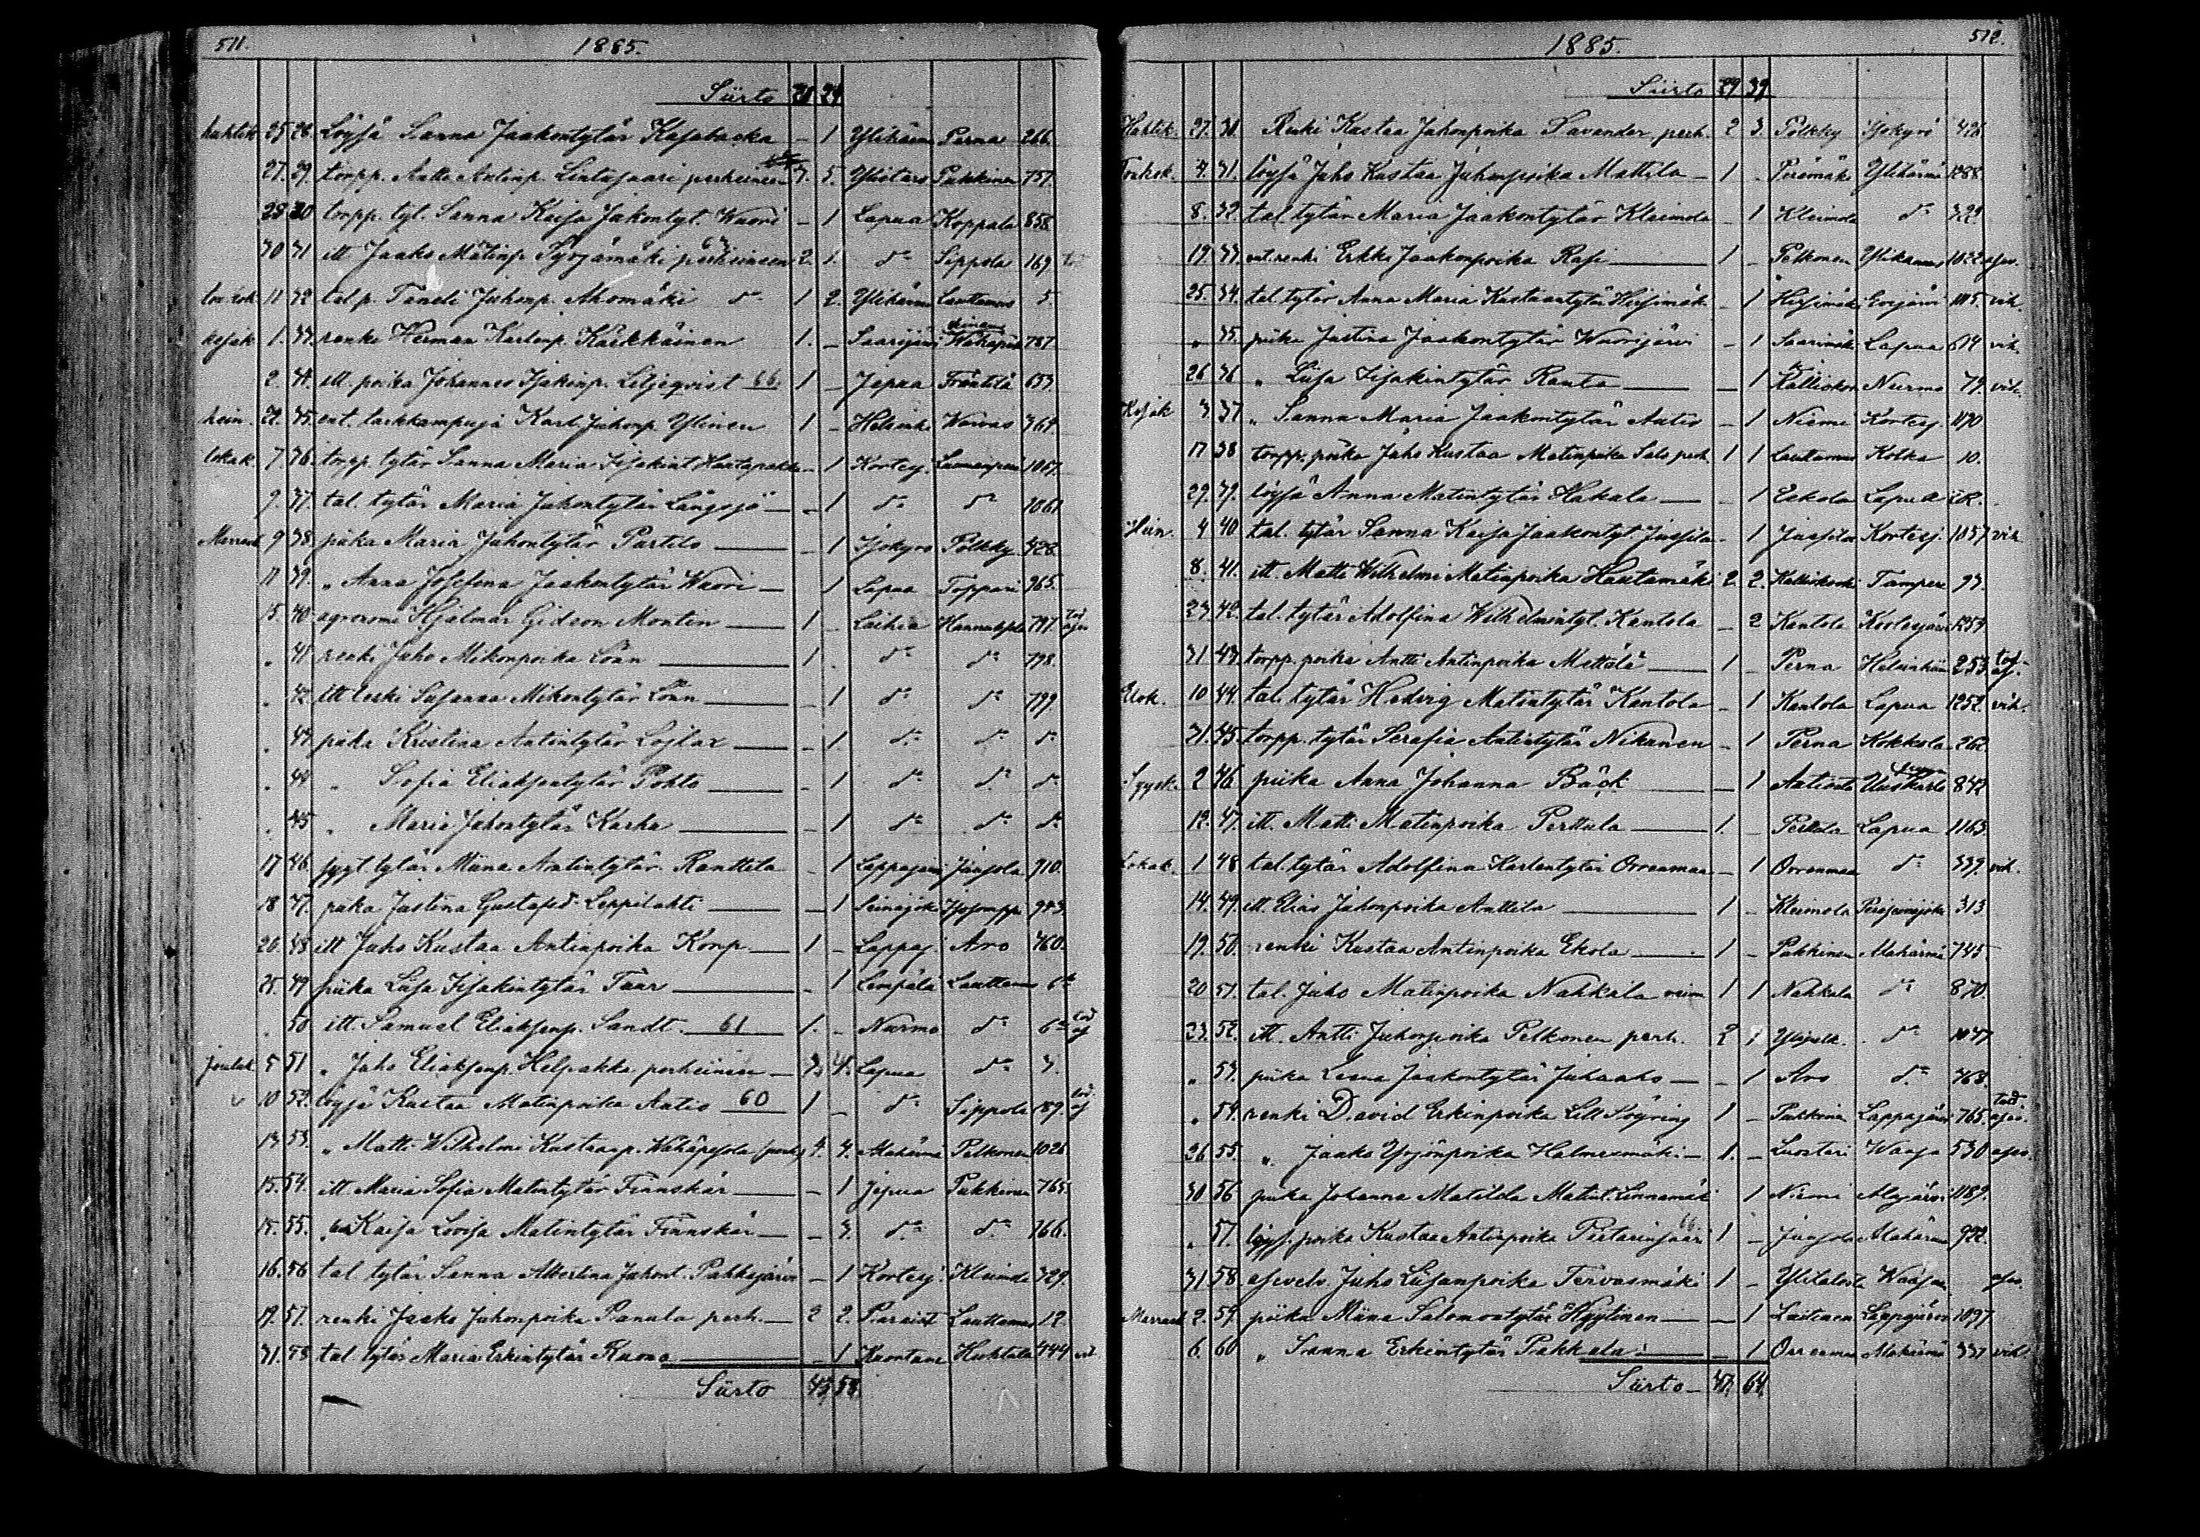 511.
1885.
Siirto 21 24
huhtik. 25. 28. Löysä Sanna Jaakontytär Kasabacka - 1 Ylihärm Perna 266.
27. 29. torpp. Antti Antinp. Lintusaari perheineen 7. 5. Ylistaro Pukkinen 757.
28 30 torpp. tyt. Sanna Kaisa Jakontyt. Wuori - 1 Lapua Koppala 858.
30 31 itt Jaako Matinp. Syrjämäki 63 perheineen 2. 1. do Sippola 169
toukok 11 32 tal. p. Taneli Juhonp. Ahomäki do 1 2. Ylihärm Lauttamus 5.
kesäk 1. 33. renki Herman Karlenp. Kärkkäinen 1. - Saarijärvi 787
2. 34. itt. poika Johannes Isakinp. Liljeqvist 66. 1 - Jepua 653.
hein. 22. 35. ent. Karl Juhonp. Ylinen 1 - Helsinki 364.
lokak. 7 36. torpp. tytär Sanna Maria Isakint. Hautapakka - 1 Kortesj. 1067.
9. 37. tal. tytär Maria Juhontytär Långsjö - 1 do do 1061
Marrask 9 38. piika Maria Juhontytär Partilo - 1 Isokyrö Pölkky 428.
11 39. „ Anna Josefina Jaakontytär Wuori - 1 Lapua Toppari 965.
15. 40. agronomi Hjalmar Gideon Montin 1 - Laihia Hannuksela 797. tod ajes
„ 41 renki Juho Mikonpoika Löän 1 . do do 798.
„ 42. itt leski Susanna Mikontytär Löän - 1 do do 799.
„ 43 piika Kristina Antintytär Lojlax - 1 do do do
„ 44 „ Sofia Eliaksentytär Pohto - 1 do do do
„ 45 „ Maria Juhontytär Karha - 1 do do do
17 46. tytär Miina Antintytär Ranttila - 1 Lappajärvi Jaassola 910.
18 47. piika Justina Gustafsd. Leppilahti - 1 Seinäjoki 943.
20. 48. itt Juho Kustaa Antinpoika Korp. 1 - Lappaj. Aro 460.
25. 49 piika Liisa Isakintytär Täär - 1 Lempälä Lauttamus 6
„ 50. itt. Samuel Eliaksenp. Sandt. 61 1. - Nurmo do 6 tod aj
Jouluk 5 51 „ Juho Eliaksenp. Helpakka perheineen 3. 4. Lapua do 3.
10 52. löysä Kustaa Matinpoika Autio 60 1 - do Sippola 189. tod. aj
13 53. „ Matti Wilhelmi Kustaanp. Wähäpesola (perh.) 4. 4. Alahärmä Pelkonen 1026.
15. 54. itt Maria Sofia Matintytär Finnskär - 1 Jepua Pukkinen 765.
15. 55. „ Kaisa Lovisa Matintytär Finnskär - 3. do do 766.
16. 56 tal. tytär Sanna Albertina Juhont. Pakkajärvi - 1 Kortesj Kleimola 329.
19. 57. renki Jaako Juhonpoika Panula perh. 2 2. Lauttamus 12.
31. 58 tal. tytär Maria Erkintytär Ruona - 1 Kuortane Huhtala 444 vih
Siirto 43. 58.
1885.
512.
Siirto 29 39
Huhtik. 27. 30. Renki Kustaa Juhonpoika Lavender perh. 2 3. Pölkky Isokyrö 426
Toukok. 4. 31. löysä Juho Kustaa Juhonpoika Mattila 1 - Peremäki Ylihärmä 1288.
8. 32. tal. tytär Maria Jaakontytär Kleimola - 1 Kleimola do 322.
19. 33. ent. renki Erkki Jaakonpoika Rasi 1 - Pelkonen Ylikannus 1022 ajes.
25. 34. tal. tytär Anna Maria Kustaantytär Hirsimäki - 1 Hirsimäki Evijärvi 1115. vih.
„ 35. piika Justina Jaakontytär Wuorijärvi - 1 Saarimäki Lapua 614 vih.
26 36 „ Liisa Isakintytär Ranta - 1 Kalliokoski Nurmo 79. vih.
Kesäk 3. 37. „ Sanna Maria Jaakontytär Autio - 1 Niemi Kortesj. 1190
17 38 torpp. poika Juho Kustaa Matinpoika Salo perh. 1 1 Lauttamus Kolka 10.
29. 39. löysä Anna Matintytär Hakala - 1 Eskola Lapua
Hein. 4 40 tal. tytär Sanna Kaisa Jaakontyt. Jussila - 1 Jussila Kortesj. 1057. vih
8. 41. itt. Matti Wilhelmi Matinpoika Hautamäki 2. 2. Kalliokoski Tampere 93.
23. 42. tal. tytär Adolfina Wilhelmintyt. Kantola - 2 Kantola Kortesjärvi 1254
31 43. torpp. poika Antti Antinpoika Mettälä 1 - Perna Helsinkiin 253. tod. aj.
Elok. 10 44. tal. tytär Hedvig Matintytär Kantola - 1 Kantola Lapua 1252. vih.
31. 45. torpp. tytär Serafia Antintytär Nikanen - 1 Perna Kokkola 262
Syysk. 2 46 piika Anna Johanna Bäck - 1 Antionta Uuskarle 842
12. 47. itt. Matti Matinpoika Perttula 1. - Perttula Lapua 1163.
Lokak. 1 48 tal. tytär Adolfina Karlentytär Orrenmaa - 1 Orrenmaa do 339. vih.
14. 49. itt. Elias Juhonpoika Anttila 1 - Kleimola Peräseinäjoki 313
19. 50. renki Kustaa Antinpoika Ekola 1 - Pukkinen Alahärmä 745
20 51. tal. Juho Matinpoika Nahkala vaim 1 1 Nahkala do 870.
23. 52. itt. Antti Juhonpoika Pelkonen perh. 2 1 Ylipelk. do 1047
„ 53. piika Leena Jaakontytär Juhaaho - 1 Aro do 468.
„ 54. renki David Erkinpoika Lill Sögring 1 - Pukkinen Lappajärvi 765. tod ajes.
26 55. „ Jaako Yrjönpoika Halmesmäki 1. - Luostari Waasa 530 ajes.
30 56 piika Johanna Matilda Matint. Linnamäki 1 Niemi Alajärvi 1189.
„ 57. löys. poika Kustaa Antinpoika Pietarinsaari 66. 1 - Jaassola Alahärmä 922.
31 58. asevelv. Juho Liisanpoika Tervasmäki 1 - Ylitalo Waasan ajes.
Marrask 2. 59. piika Miina Salomontytär Hyytinen - 1 Luttinen Lappajärvi 1097
6. 60 „ Sanna Erkintytär Pakkala - 1 Orrenmaa Alahärmä 337 vih.
Siirto 47. 64.